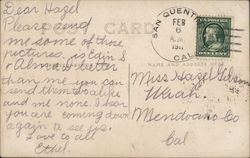 Dear Hazel
Please send
me some of those
pictures, as Edin S
& Alma's better
than me you can
send them two alike
and me none. I hear
you are coming down
again to see us.
Love to all
Ethel.
POST CARD
SAN QUENTIN
FEB
6
A.M.
1911
CAL.
Miss Hazel Gibson
Ukiah.
Mendocino Co
Cal